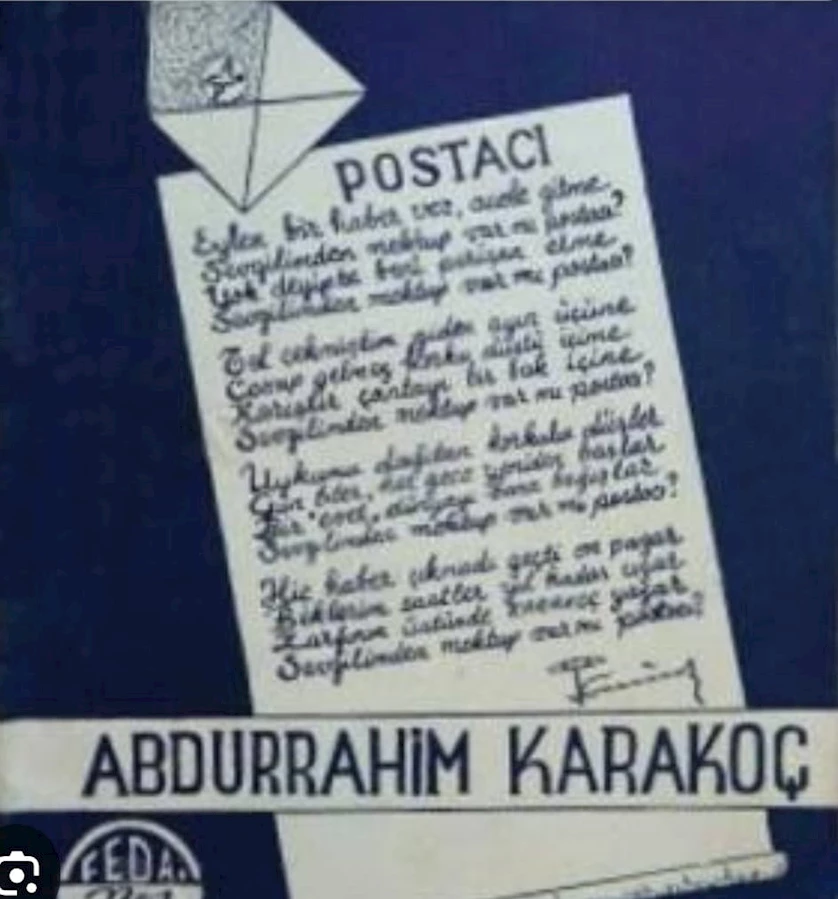 POSTACI
Eylen bir haber ver, acele gitme
Sevgilimden mektup var mı postacı?
Yok deyipte beni perişan etme
Sevgilimden mektup var mı postacı?
Tel çekmiştim giden ayın üçüne
Cevap gelmeç korku düştü içime
Karıştır çantayı bir bak içine
Sevgilimden mektup var mı postacı?
Uykumu dağıtan korkulu düşler
Gün biter, her gece yeniden başlar
evet, dünyayı bana bağışlar
Sevgilimden mektup var mı postacı?
Hiç haber çıkmadı geçti on pazar
Beklerim saatler yıl kadar uzar
Zarfının üstünde yazar
Sevgilimden mektup var mı postacı?
ABDURRAHİM KARAKOÇ
FEDA.